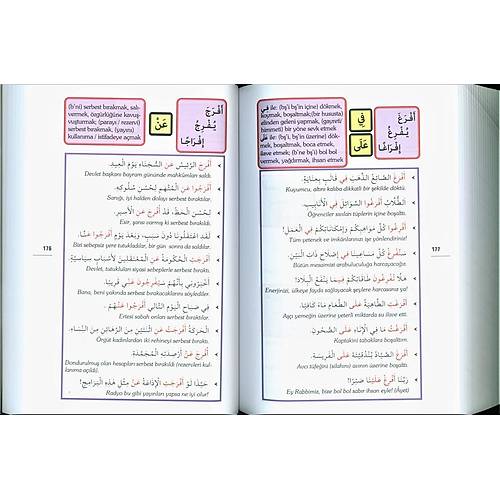 (b'ni) serbest bırakmak, salı-
vermek, özgürlüğüne kavuş-
vuşturmak; (parayı / rezervi)
serbest bırakmak, (yayını)
kullanıma / istifadeye açmak
عَنْ
أَفْرَجَ
يُفْرِجُ
إِفْرَاجًا
أَفْرَجَ الرَّئِيسُ عَنِ السُّجَنَاءِ يَوْمَ الْعِيدِ.
Devlet başkanı bayram gününde mahkûmları saldı.
أَفْرَجُوا عَنِ الْمُتَّهَمِ لِحُسْنِ سُلُوكِهِ.
Sanığı, iyi halden dolayı serbest bıraktılar.
لِحُسْنِ الْحَظِّ، قَدْ أَفْرَجَ عَنِ الْأَسِيرِ.
Esir, şansı varmış ki serbest bırakıldı.
لَقَدِ اعْتَقَلُونَا دُونَ سَبَبٍ، وَبَعْدَ يَوْمٍ أَفْرَجُوا عَنَّا.
Bizi sebepsiz yere tutukladılar, bir gün sonra da saldılar.
أَفْرَجَتِ الْحُكُومَةُ عَنِ الْمُعْتَقَلِينَ لِأَسْبَابٍ سِيَاسِيَّةٍ.
Devlet, tutukluları siyasi sebeplerle serbest bıraktı.
أَخْبَرُونِي بِأَنَّهُمْ سَيُفْرِجُونَ عَنِّي قَرِيبًا.
Bana, beni yakında serbest bırakacaklarını söylediler.
فِي صَبَاحِ الْيَوْمِ التَّالِي أَفْرَجُوا عَنْهُمْ.
Ertesi sabah onları serbest bıraktılar.
الْحَرَكَةُ أَفْرَجَتْ عَنِ اثْنَتَيْنِ مِنَ الرَّهَائِنِ مِنَ النِّسَاءِ.
Örgüt kadınlardan iki rehineyi serbest bıraktı.
أَفْرَجَ عَنْ أَرْصِدَتِهِ الْمُجَمَّدَةِ.
Dondurulmuş olan hesapları serbest bıraktı (rezervleri kul-
lanıma açtı).
حَبَّذَا لَوْ أَفْرَجَتِ الْإِذَاعَةُ عَنْ مِثْلِ هَذِهِ الْبَرَامِجِ!
Radyo bu gibi yayınları yapsa ne iyi olur!
176
فِي ile: (bş'i bş'in içine) dökmek,
koymak, boşaltmak; (bir hususta)
elinden geleni yapmak, (gayreti/
himmeti) bir yöne sevk etmek
عَلَى ile: (bş'i bş'in üzerine) dök-
mek, boşaltmak, boca etmek,
ilave etmek; (b'ne bş'i) bol bol
vermek, yağdırmak, ihsan etmek
فِي
عَلَى
أَفْرَغَ
يُفْرِغُ
إِفْرَاغًا
أَفْرَغَ الصَّائِغُ الذَّهَبَ فِي قَالَبٍ بِعِنَايَةٍ.
Kuyumcu, altını kalıba dikkatli bir şekilde döktü.
الطُّلَّابُ أَفْرَغُوا السَّوَائِلَ فِي الْأَنَابِيبِ.
Öğrenciler sıvıları tüplerin içine boşalttı.
أَفْرِغُوا كُلَّ مَوَاهِبِكُمْ وَإِمْكَانَاتِكُمْ فِي الْعَمَلِ!
Tüm yetenek ve imkânlarınızı işe yönlendiriniz!
سَنُفْرِغُ كُلَّ مَسَاعِينَا فِي إِصْلَاحِ ذَاتِ الْبَيْنِ.
Bütün mesaimizi arabuluculuğa harcayacağız.
هَلَّا تُفْرِغُونَ طَاقَاتِكُمْ فِيمَا يَنْفَعُ الْبِلَادَ!
Enerjinizi, ülkeye fayda sağlayacak şeylere harcasanız ya!
أَفْرَغَتِ الطَّاهِيَةُ عَلَى الطَّعَامِ مَاءً كَافِيًا.
Aşçı yemeğin üzerine yeterli miktarda su ilave etti.
أَفْرَغْتُ مَا فِي الْإِنَاءِ عَلَى الصُّحُونِ.
Kaptakini tabaklara boşalttım.
أَفْرَغَ الصَّيَّادُ بُنْدُقِيَّتَهُ عَلَى الْفَرِيسَةِ.
Avcı tüfeğini (silahını) avının üzerine boşalttı.
رَبَّنَا أَفْرِغْ عَلَيْنَا صَبْرًا!
Ey Rabbimiz, bize bol bol sabır ihsan eyle! (Âyet)
177